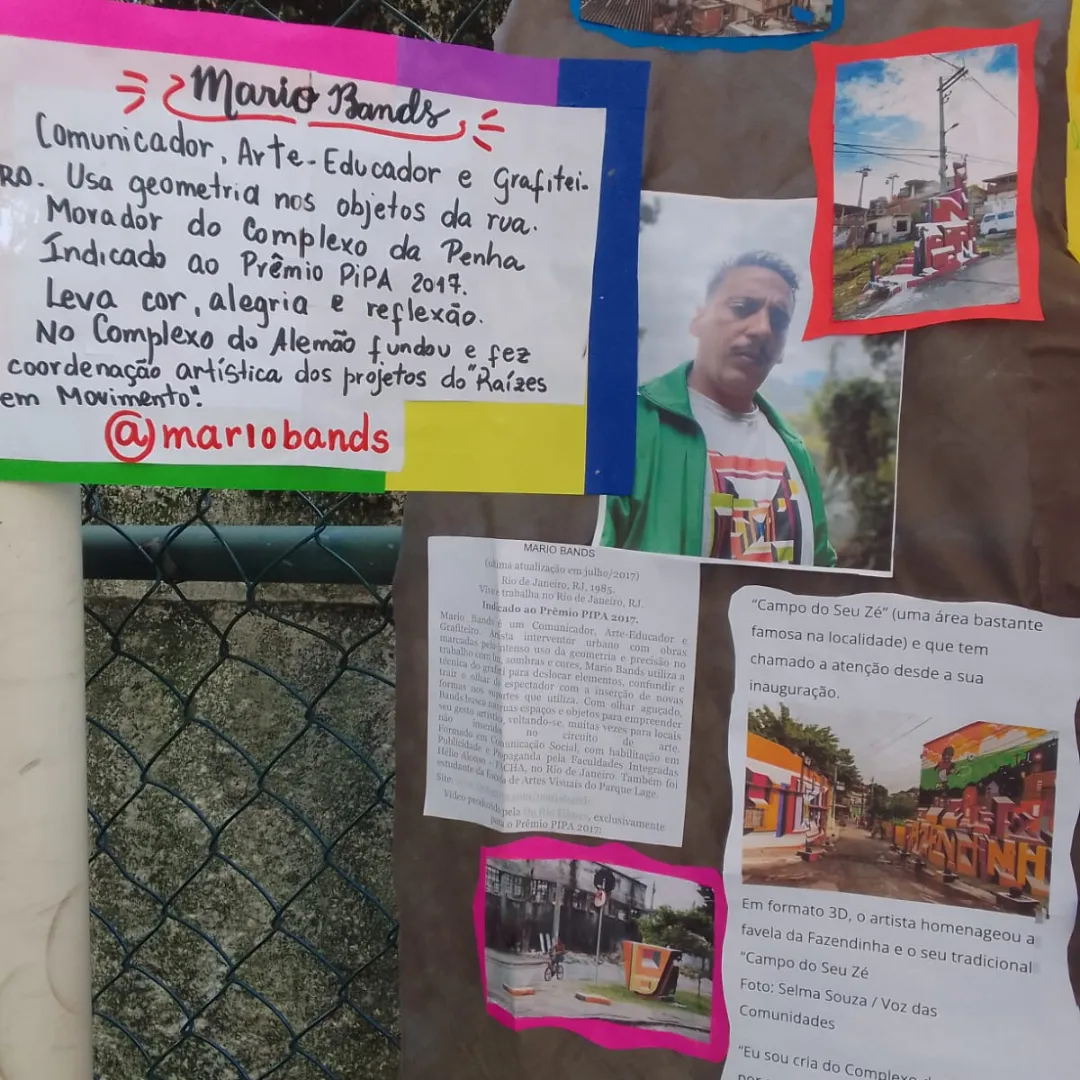 Mario Bands
Comunicador, Arte-Educador e Grafitei-
RO. Usa geometria nos objetos da rua.
Morador do Complexo da Penha
Indicado ao Prêmio PiPA 2017.
Leva cor, alegria e reflexão.
No Complexo do Alemão fundou e fez
coordenação artística dos projetos do "Raízes
em Movimento".
@mariobands
MARIO BANDS
(última atualização em julho/2017)
Rio de Janeiro, RJ, 1985.
Vive e trabalha no Rio de Janeiro, RJ.
Indicado ao Prêmio PIPA 2017.
Mario Bands é um Comunicador, Arte-Educador e
Grafiteiro. Artista interventor urbano com obras
marcadas pelo intenso uso da geometria e precisão no
trabalho com luz, sombras e cores, Mario Bands utiliza a
técnica do grafite para deslocar elementos, confundir e
trair o olhar do espectador com a inserção de novas
formas nos suportes que utiliza. Com olhar aguçado,
Bands busca espaços e objetos para empreender
seu gesto artístico, voltando-se, muitas vezes para locais
não inseridos no circuito de arte.
Formado em Comunicação Social, com habilitação em
Publicidade e Propaganda pela Faculdades Integradas
Hélio Alonso – FACHA, no Rio de Janeiro. Também foi
estudante da Escola de Artes Visuais do Parque Lage.
Site:
Vídeo produzido pela Do Rio Filmes, exclusivamente
para o Prêmio PIPA 2017:
"Campo do Seu Zé" (uma área bastante
famosa na localidade) e que tem
chamado a atenção desde a sua
inauguração.
Em formato 3D, o artista homenageou a
favela da Fazendinha e o seu tradicional
"Campo do Seu Zé
Foto: Selma Souza / Voz das
Comunidades
"Eu sou cria do Complexo d